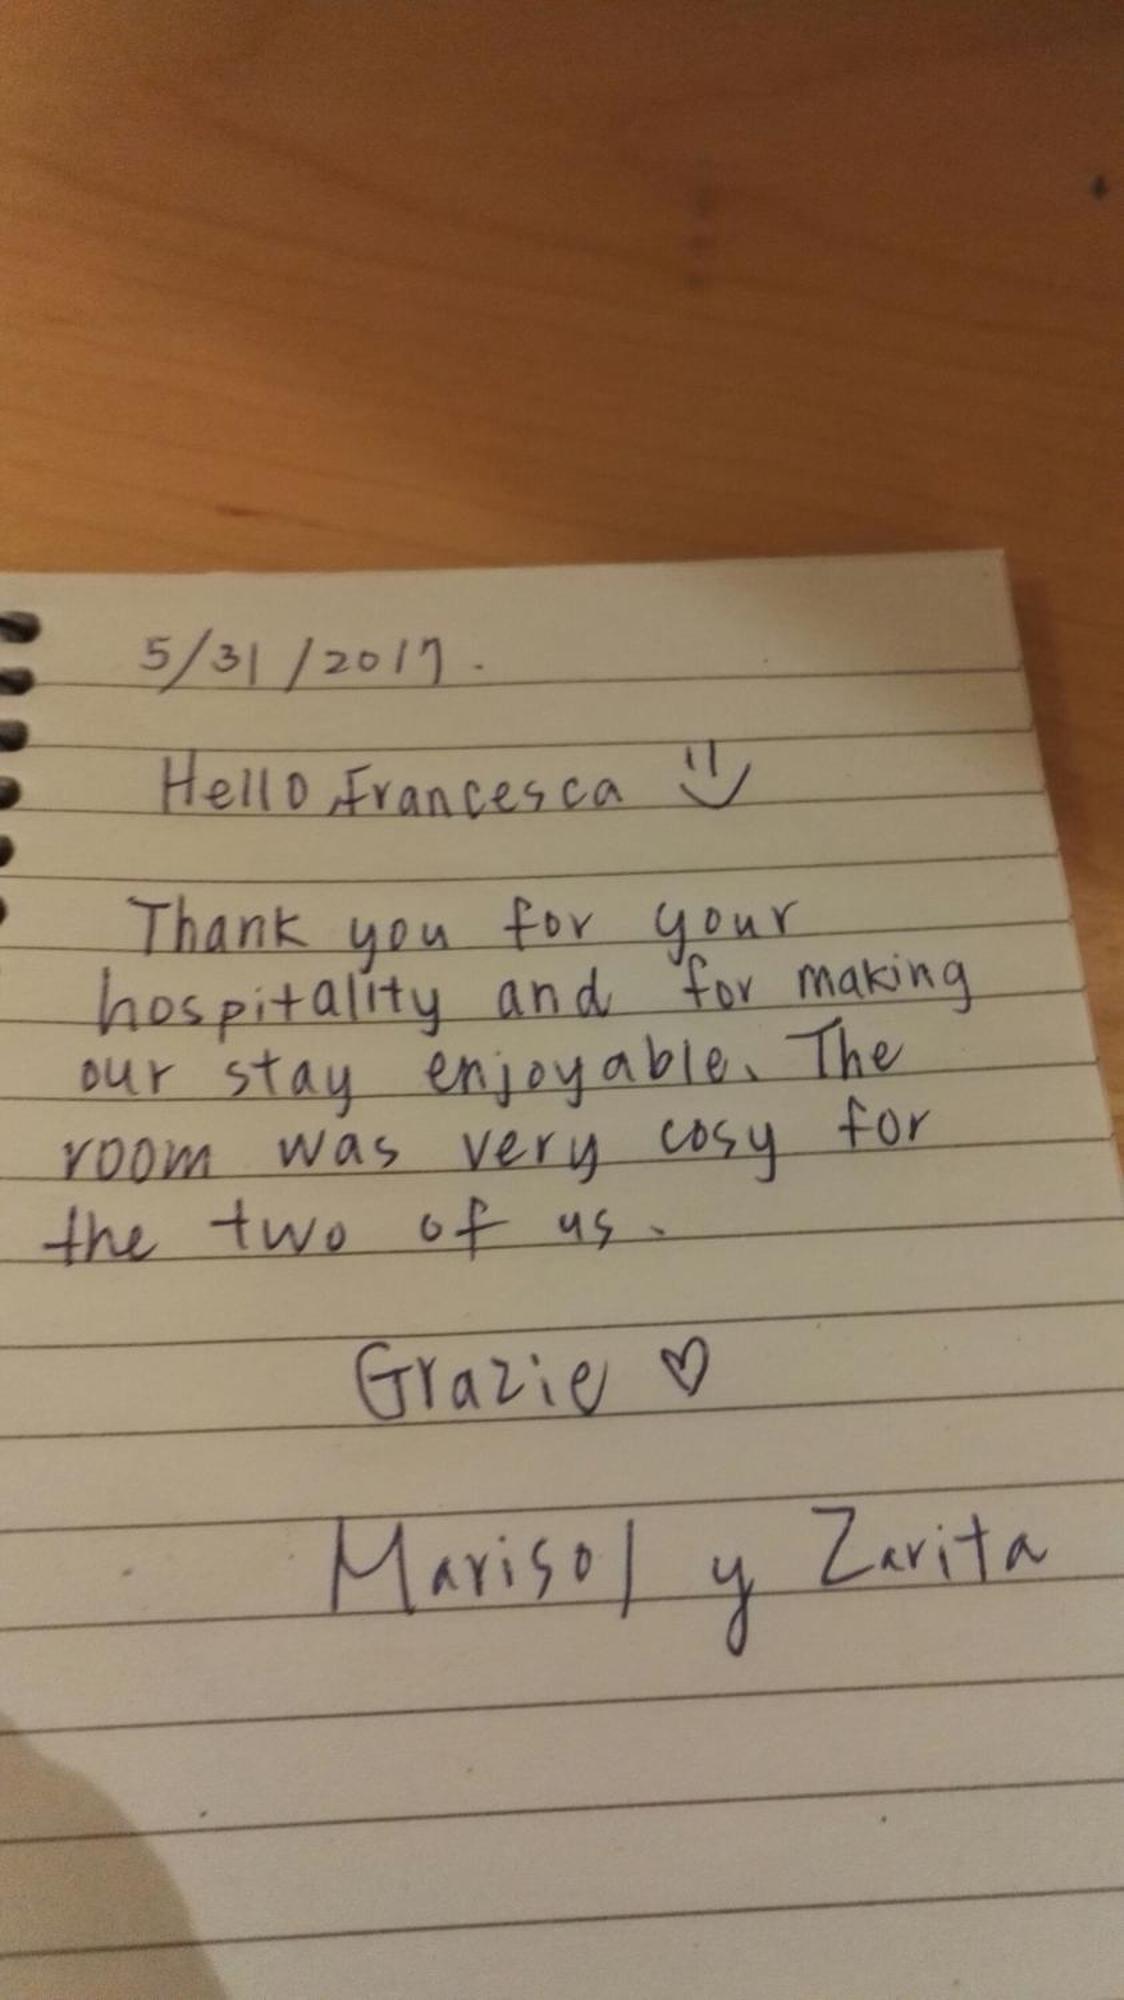 5/31/2017.
Hello, Francesca
Thank you for your
hospitality and for making
our stay enjoyable. The
room was very cosy for
the two of us.
Grazie ♡
Marisol y Zarita